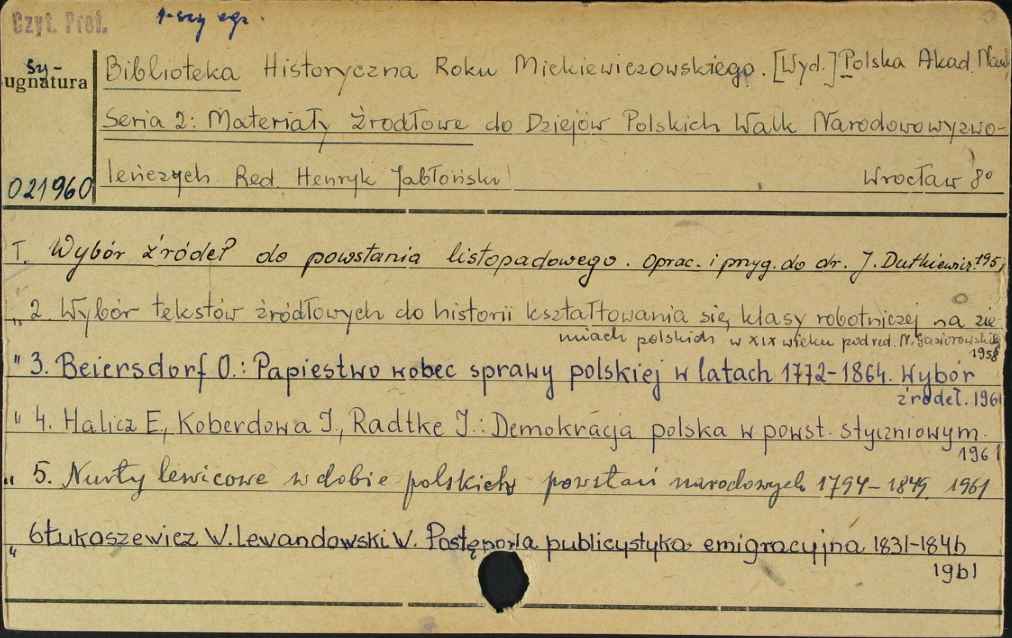 Czyt. Prof. 1-szy egz.
Sy-
ugnatura
Biblioteka Historyczna Roku Mickiewiczowskiego. [Wyd.] Polska Akad. Nauk
Seria 2: Materiały źródłowe do Dziejów Polskich Walk Narodowowyzwo-
leńczych Red. Henryk Jabłoński Wrocław 8°
021960
T. Wybór źródeł do powstania listopadowego. Oprac. i przyg. do dr. J. Dutkiewicz. 195
" 2 Wybór tekstów źródłowych do historii kształtowania się klasy robotniczej na zie-
miach polskich w XIX wieku pod red. N. Gąsiorowskiej
1958
" 3. Beiersdorf O.: Papiestwo wobec sprawy polskiej w latach 1772-1864. Wybór
źródeł. 1961
" 4. Halicz E., Koberdowa I., Radtke I.: Demokracja polska w powst. styczniowym.
1961
" 5. Nurty lewicowe w dobie polskich powstań narodowych 1794-1849. 1961
" 6 Łukaszewicz W. Lewandowski W. Postępowa publicystyka emigracyjna 1831-1846
1961